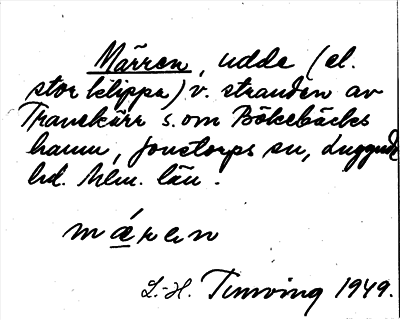 Märren, udde (el.
stor klippa) v. stranden av
Tranekärr s. om Bökebäcks
hamn, Jonstorps sn, Luggude
hd. Mlm. län.
mǽren
L.-H. Tunving 1949.